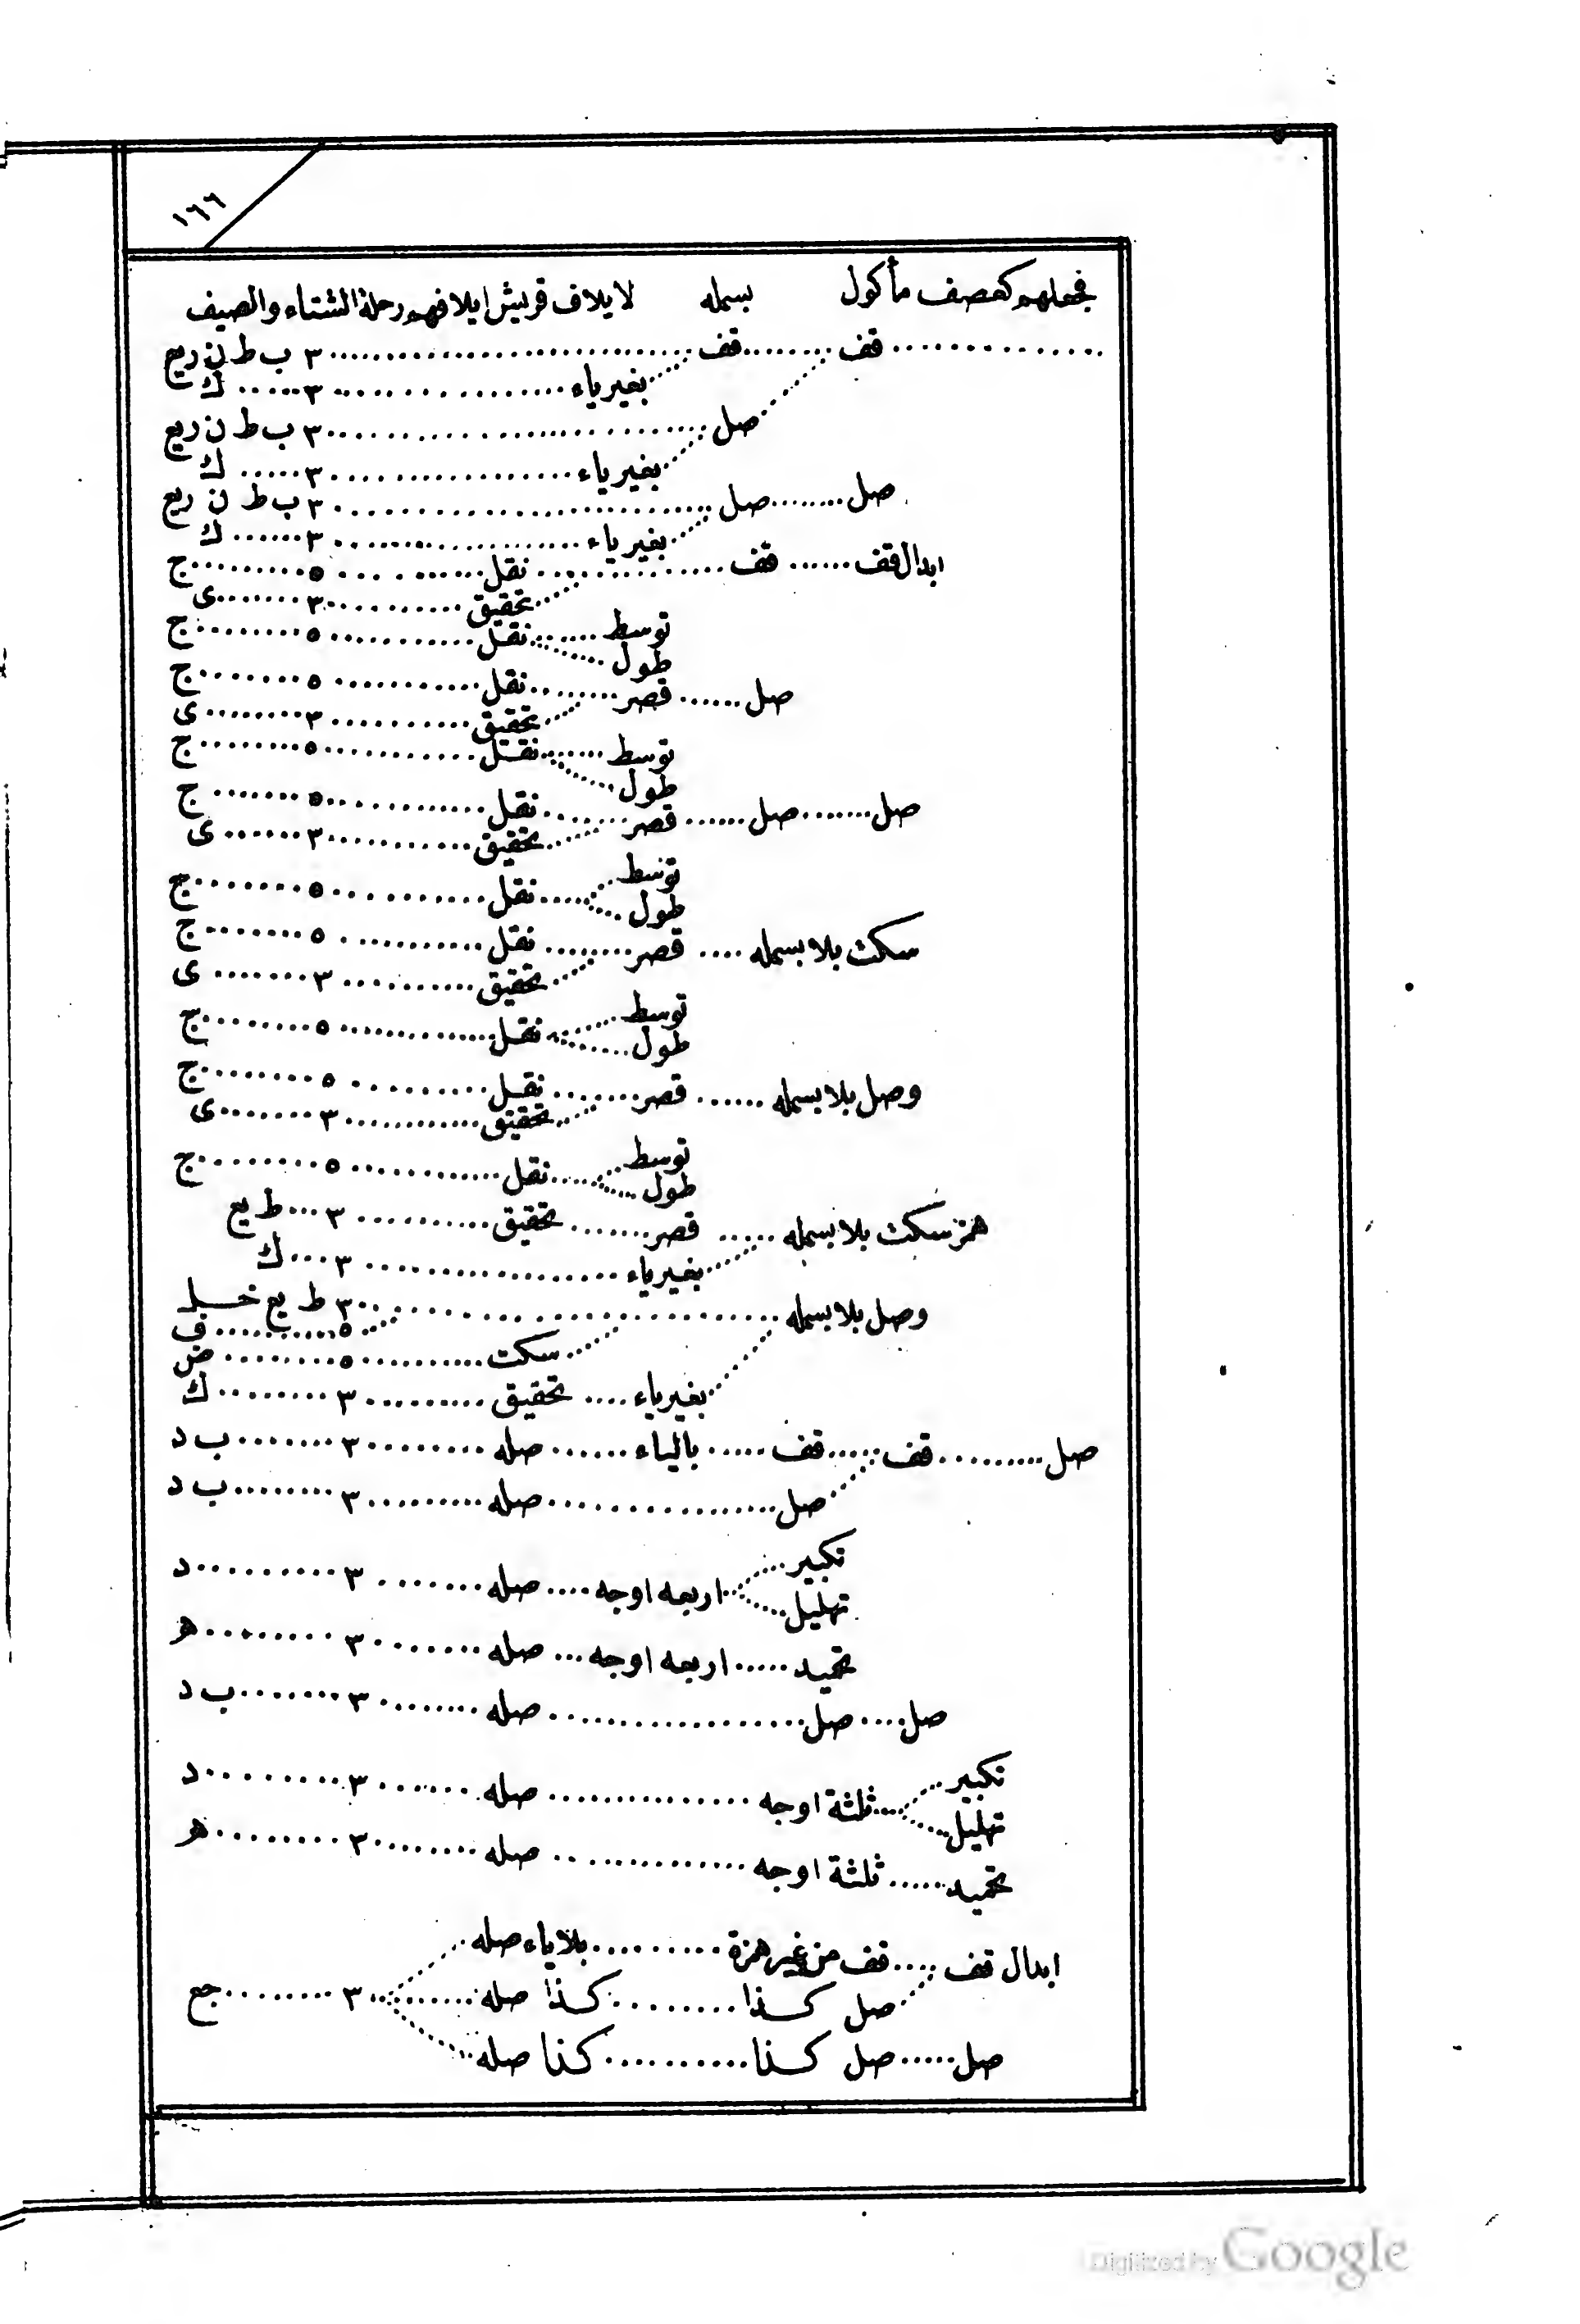 ١٦٦
فجعلهم كعصف مأكول بسمله لايلاف قريش ايلافهم رحلة الشتاء والصيف
قف قف ٣ ب ط ن ريع
بغير ياء ٣ ك
صل ٣ ب ط ن ريع
بغير ياء ٣ ك
صل صل ٣ ب ط ن ريع
بغير ياء ٣ ك
ابدال قف قف نقل ٥ ج
تحقيق ٣ ى
توسط نقل ٥ ج
طول
صل قصر نقل ٥ ج
تحقيق ٣ ى
توسط نقل ٥ ج
طول
صل صل قصر نقل ٥ ج
تحقيق ٣ ى
توسط نقل ٥ ج
طول
سكت بلا بسمله قصر نقل ٥ ج
تحقيق ٣ ى
توسط نقل ٥ ج
طول
وصل بلا بسمله قصر نقل ٥ ج
تحقيق ٣ ى
توسط نقل ٥ ج
طول
همز سكت بلا بسمله قصر تحقيق ٣ ط يع
بغير ياء ٣ ك
وصل بلا بسمله ٣ ط يع
٥ ف
سكت ٥ ض
بغير ياء تحقيق ٣ ك
صل قف قف بالياء صله ٣ ب د
صل صله ٣ ب د
تكبير اربعه اوجه صله ٣ د
تهليل
تحميد اربعه اوجه صله ٣ ه
صل صل صله ٣ ب د
تكبير ثلثة اوجه صله ٣ د
تهليل
تحميد ثلثة اوجه صله ٣ ه
ابدال قف قف من غير همزة بلا ياء صله
صل كذا كذا صله ٣ جع
صل صل كذا كذا صله
Digitized by Google